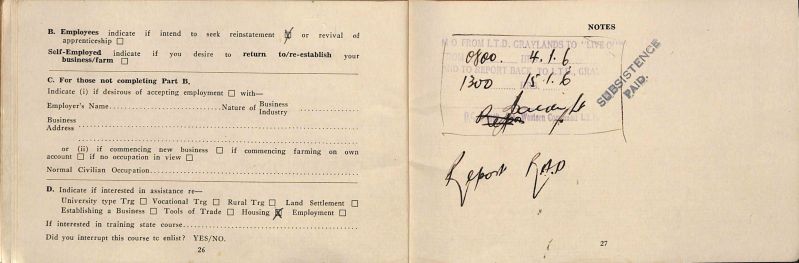 B. Employees indicate if intend to seek reinstatement ☒ or revival of
apprenticeship ☐
Self-Employed indicate if you desire to return to/re-establish your
business/farm ☐
C. For those not completing Part B.
Indicate (i) if desirous of accepting employment ☐ with—
Employer's Name........................Nature of Business Industry ........................
Business
Address ........................
or (ii) if commencing new business ☐ if commencing farming on own
account ☐ if no occupation in view ☐
Normal Civilian Occupation........................
D. Indicate if interested in assistance re—
University type Trg ☐ Vocational Trg ☐ Rural Trg ☐ Land Settlement ☐
Establishing a Business ☐ Tools of Trade ☐ Housing ☒ Employment ☐
If interested in training state course........................
Did you interrupt this course to enlist? YES/NO.
26
NOTES
FROM L.T.D. GRAYLANDS TO "LIVE
0800. 4.1.6
TO REPORT BACK TO L.T.D.
1300 15.1.6
SUBSISTENCE
PAID.
Western Command
Report R.A.P
27